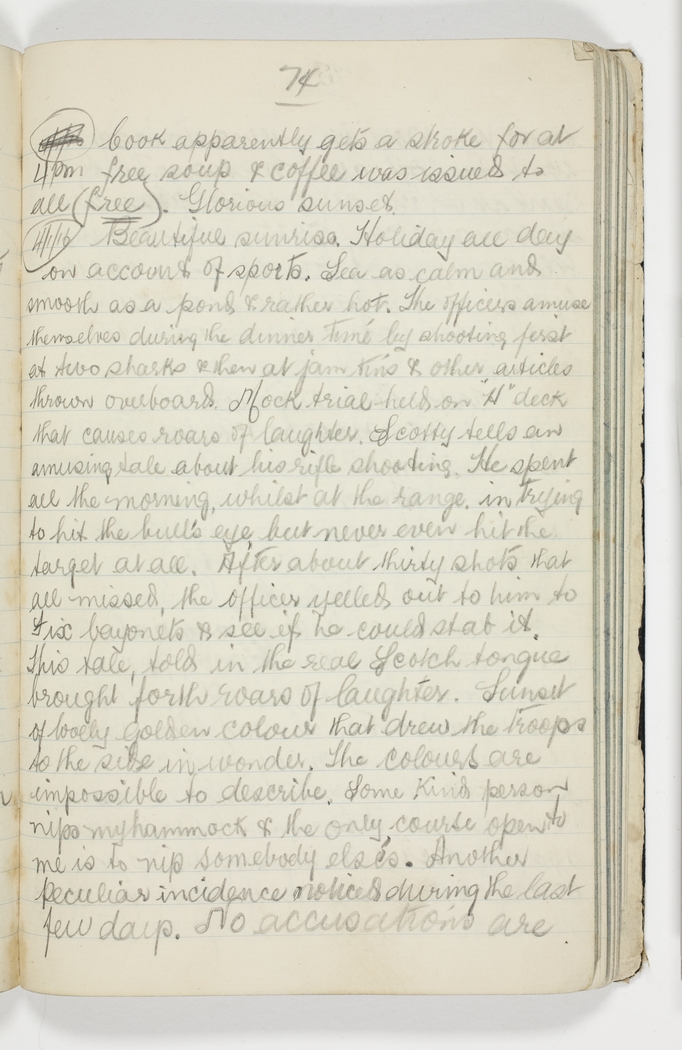 74
Cook apparently gets a stroke for at
4 pm free soup & coffee was issued to
all (free). Glorious sunset.
4/1/16 Beautiful sunrise. Holiday all day
on account of sports. Sea as calm and
smooth as a pond & rather hot. The officers amuse
themselves during the dinner time by shooting first
at two sharks & then at jam tins & other articles
thrown overboard. Mock trial held on "H" deck
that causes roars of laughter. Scotty tells an
amusing tale about his rifle shooting. He spent
all the morning, whilst at the range, in trying
to hit the bull's eye, but never even hit the
target at all. After about thirty shots that
all missed, the officer yelled out to him to
fix bayonets & see if he could stab it.
This tale, told in the real Scotch tongue
brought forth roars of laughter. Sunset
of lovely golden colour that drew the troops
to the side in wonder. The colours are
impossible to describe. Some kind person
nips my hammock & the only course open to
me is to nip somebody else's. Another
peculiar incidence noticed during the last
few days. No accusations are